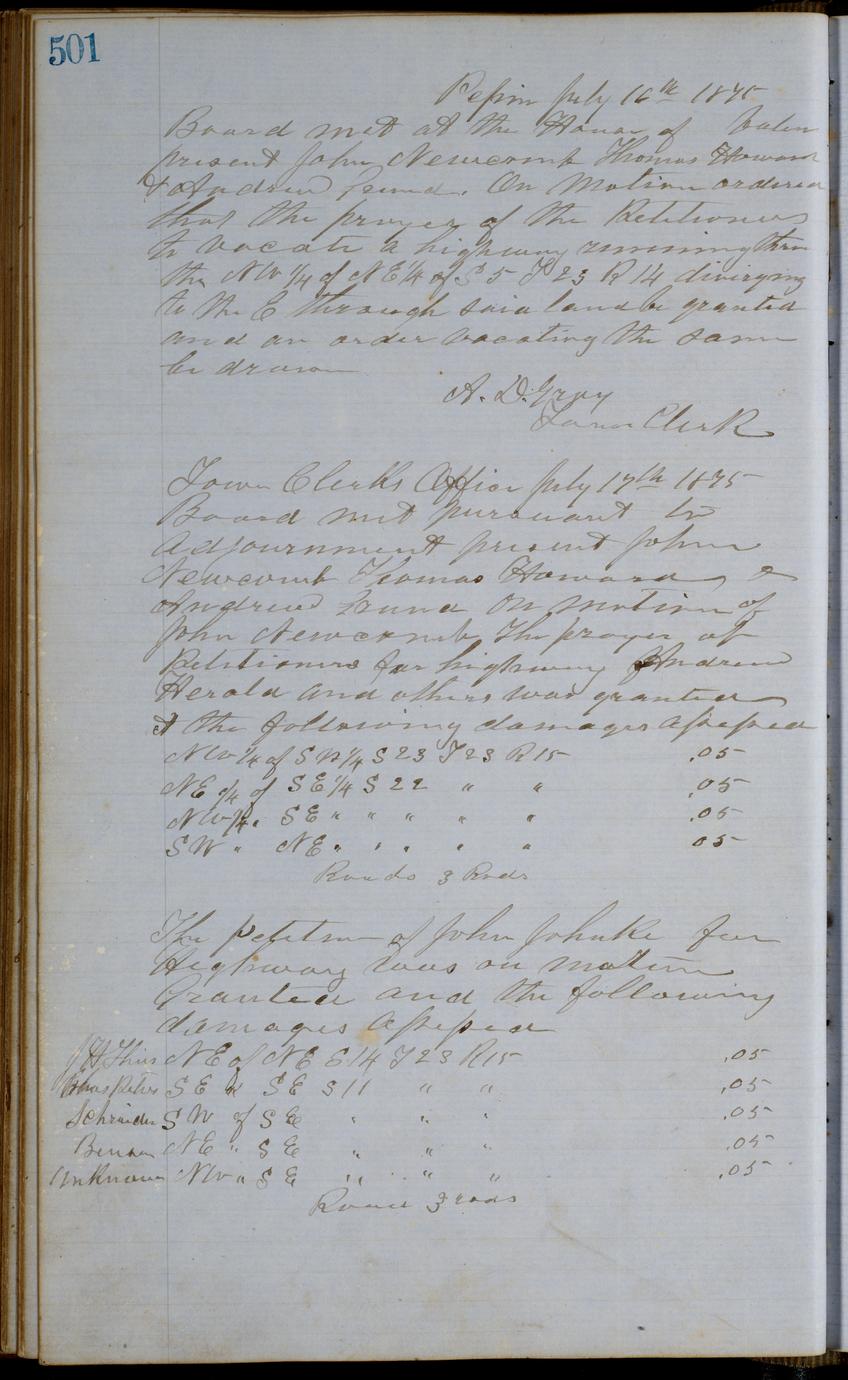 501
Pepin July 16th 1875
Board met at the House of
present John Newcomb Thomas Howard
& Andrew Freund. On Motion ordered
that the prayer of the Petitioners
to vacate a highway running thru
the NW 1/4 of NE 1/4 of S 5 T 23 R 14 diverging
to the E through said land be granted
and an order vacating the same
be drawn
A. D. Gray
Town Clerk
Town Clerks Office July 17th 1875
Board met pursuant to
adjournment present John
Newcomb Thomas Howard &
Andrew Freund On motion of
John Newcomb The prayer of
Petitioners for highway Andrew
Herold and others was granted
& the following damages assessed
NW 1/4 of SW 1/4 S 23 T 23 R 15 .05
NE 1/4 of SE 1/4 S 22 " " .05
NW 1/4 " SE " " " " " .05
SW " NE " " " " " 05
Roads 3 Rods
The petition of John Johnke for
Highway was on motion
Granted and the following
damages assessed
NE of NE S 14 T 23 R 15 .05
SE " SE S 11 " " .05
Schruden SW of SE " " " .05
NE " SE " " " .05
Unknown NW " SE " " " .05
Road 3 rods